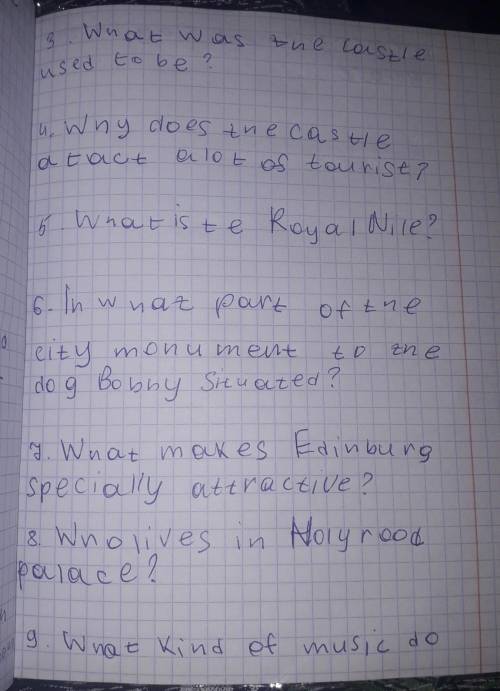 3. What was the castle
used to be?
4. Why does the castle
atact alot of tourist?
5. What is te Royal Nile?
6. In what part of the
city monument to the
dog Bobby Situated?
7. What makes Edinburg
specially attractive?
8. Who lives in Holyrood
palace?
9. What kind of music do